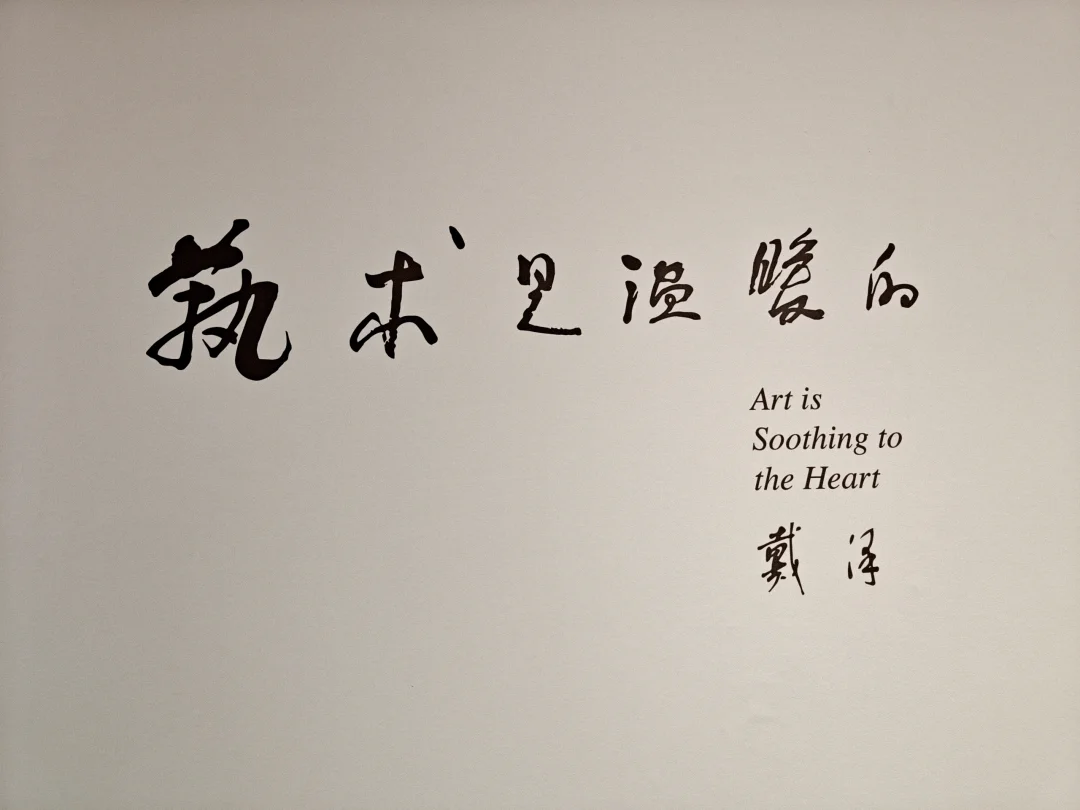 艺术是温暖的
Art is
Soothing to
the Heart
戴泽